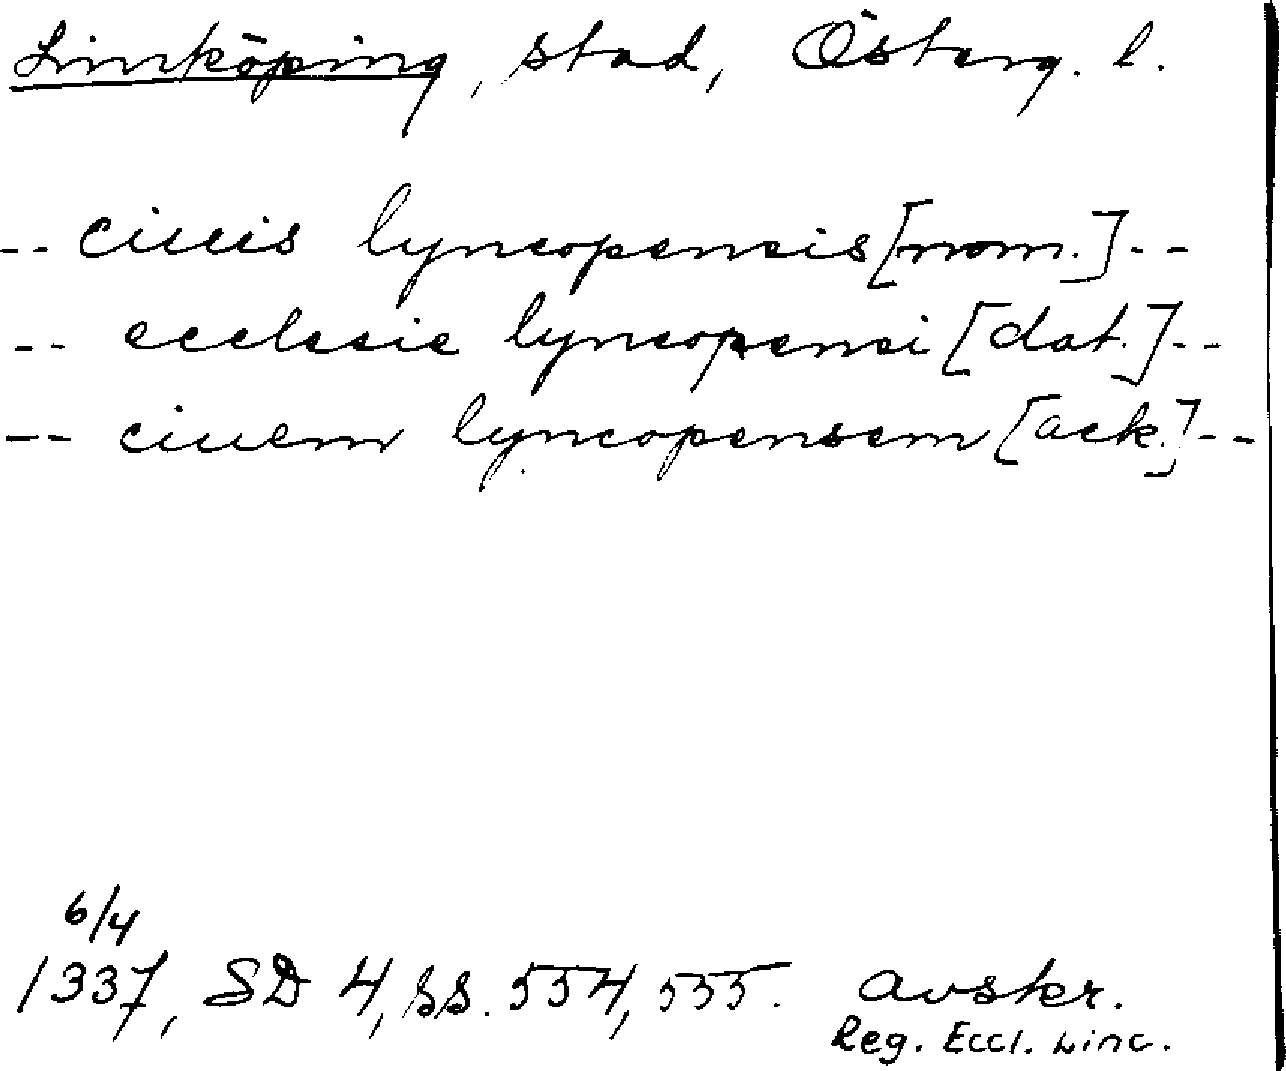 Linköping, stad, Österg. l.
-- ciuis lyncopensis [nom.] --
-- ecclesie lyncopensi [dat.] --
-- ciuem lyncopensem [ack.] --
6/4
1337, SD 4, ss. 554, 555. avskr.
Reg. Eccl. Linc.